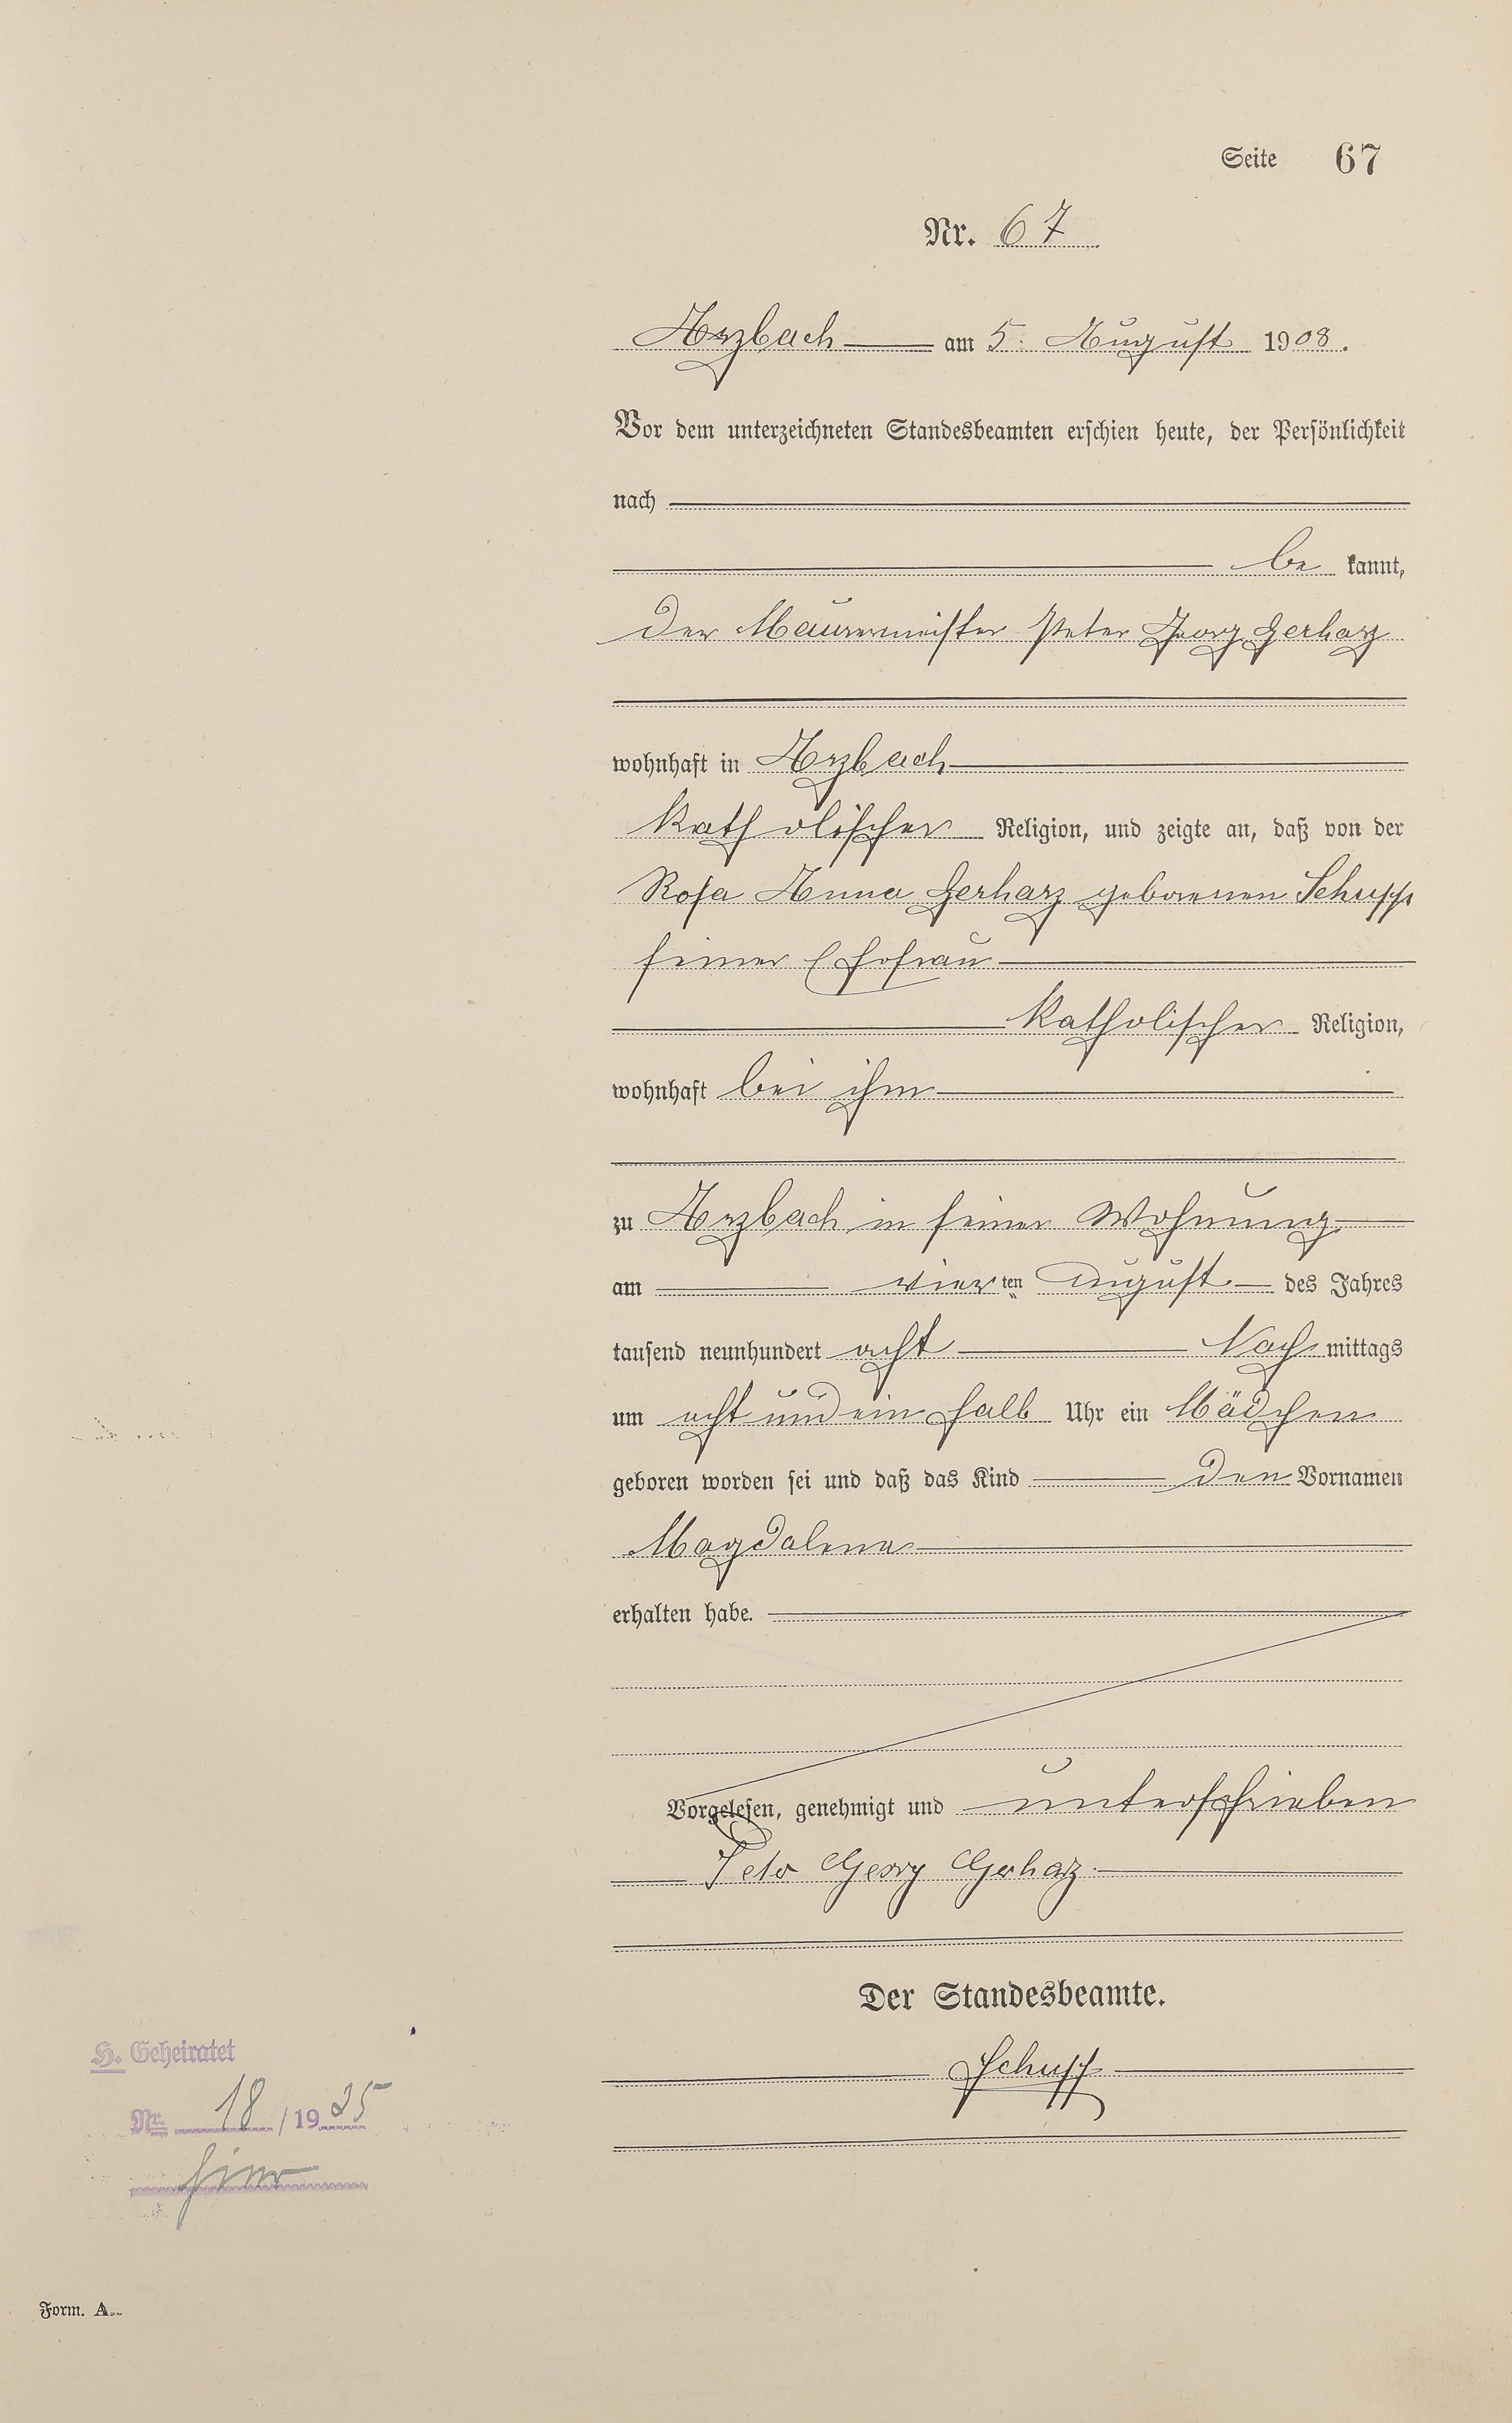 Seite 67
Nr. 67
Arzbach am 5. August 1908.
Vor dem unterzeichneten Standesbeamten erschien heute, der Persönlichkeit
nach
be kannt,
der Maurermeister Peter Georg Gerharz
wohnhaft in Arzbach
katholischer Religion, und zeigte an, daß von der
Rosa Anna Gerharz geborenen Schupp
seiner Ehefrau
katholischer Religion,
wohnhaft bei ihm
zu Arzbach in seiner Wohnung
am vierten August des Jahres
tausend neunhundert acht Nachmittags
um acht und ein halb Uhr ein Mädchen
geboren worden sei und daß das Kind den Vornamen
Magdalena
erhalten habe.
Vorgelesen, genehmigt und unterschrieben
Peter Georg Gerharz.
Der Standesbeamte.
Schupp
H. Geheiratet
Nr. 18 / 1935
hier
Form. A.